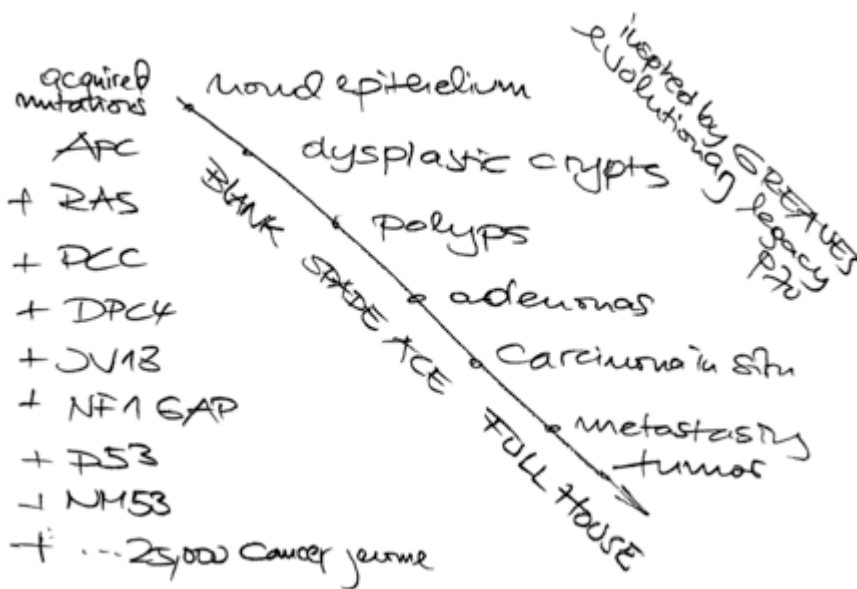 acquired
mutations
APC
+ RAS
+ DCC
+ DPC4
+ JV18
+ NF1 GAP
+ P53
+ NM53
+ ...25,000 Cancer jenome
epithelium
dysplastic crypts
polyps
adenomas
Carcinoma in situ
metastasing
tumor
BLANK SPADE ACE FULL HOUSE
inspired by GREAVES
evolutionary legacy
P70